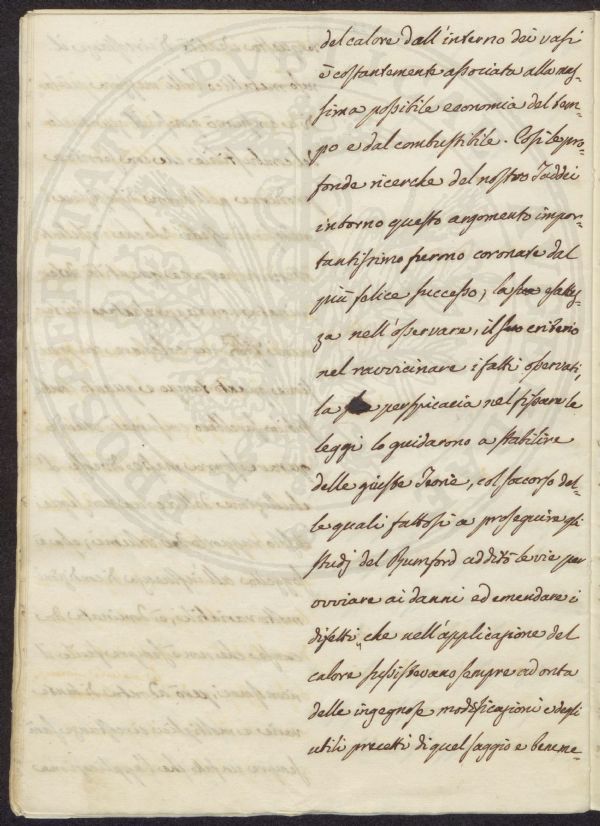 del calore dall'interno dei vasi
è costantemente associata alla mas-
sima possibile economia del tem-
po e dal combustibile. Così le pro-
fonde ricerche del nostro Taddei
intorno questo argomento impor-
tantissimo furono coronate dal
più felice successo; la sua esattez-
za nell'osservare, il suo criterio
nel ravvicinare i fatti osservati,
la perspicacia nel fissare le
leggi lo guidarono a stabilire
delle giuste Teorie, col soccorso del-
le quali fattosi a proseguire gli
studj del Rumford additò le vie per
ovviare ai danni ed emendare i
difetti, che nell'applicazione del
calore sussistevano sempre ad onta
delle ingegnose modificazioni e degli
utili precetti di quel saggio e beneme-